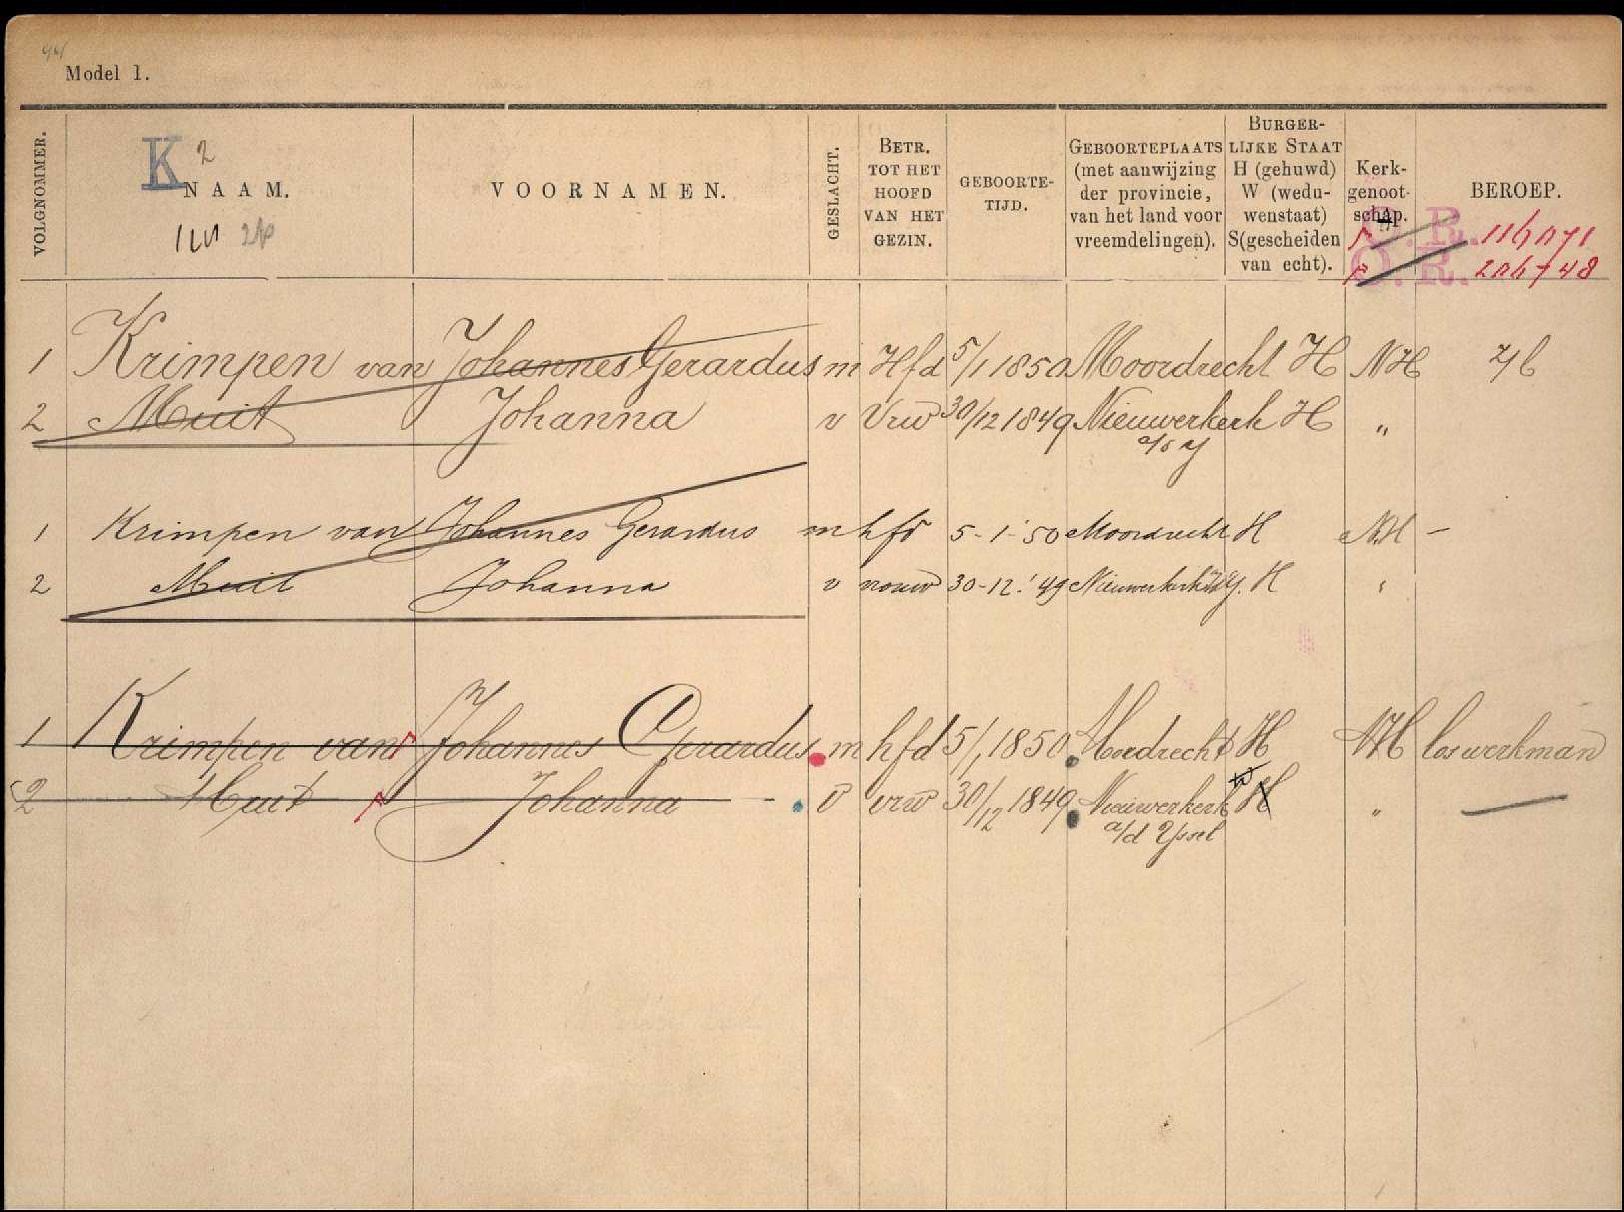 Model 1.
VOLGNOMMER.
K 2
NAAM.
VOORNAMEN.
GESLACHT.
BETR.
TOT HET
HOOFD
VAN HET
GEZIN.
GEBOORTE-
TIJD.
GEBOORTEPLAATS
(met aanwijzing
der provincie,
van het land voor
vreemdelingen).
BURGER-
LIJKE STAAT
H (gehuwd)
W (wedu-
wenstaat)
S (gescheiden
van echt).
Kerk-
genoot-
schap.
BEROEP.
O.R.
O.R.
1 Krimpen van Johannes Gerardus m Hfd 5/1 1850 Moordrecht H NH
2 Muit Johanna v Vrw 30/12 1849 Nieuwerkerk H „
1 Krimpen van Johannes Gerardus m hfd 5-1-'50 Moordrecht H N.H —
2 Muit Johanna v vrouw 30-12-'49 Nieuwerkerk H "
1 Krimpen van Johannes Gerardus m hfd 5/1 1850 Moordrecht H NH los werkman
2 Muit Johanna v vrw 30/12 1849 Nieuwerkerk W H „ —
a/d Yssel